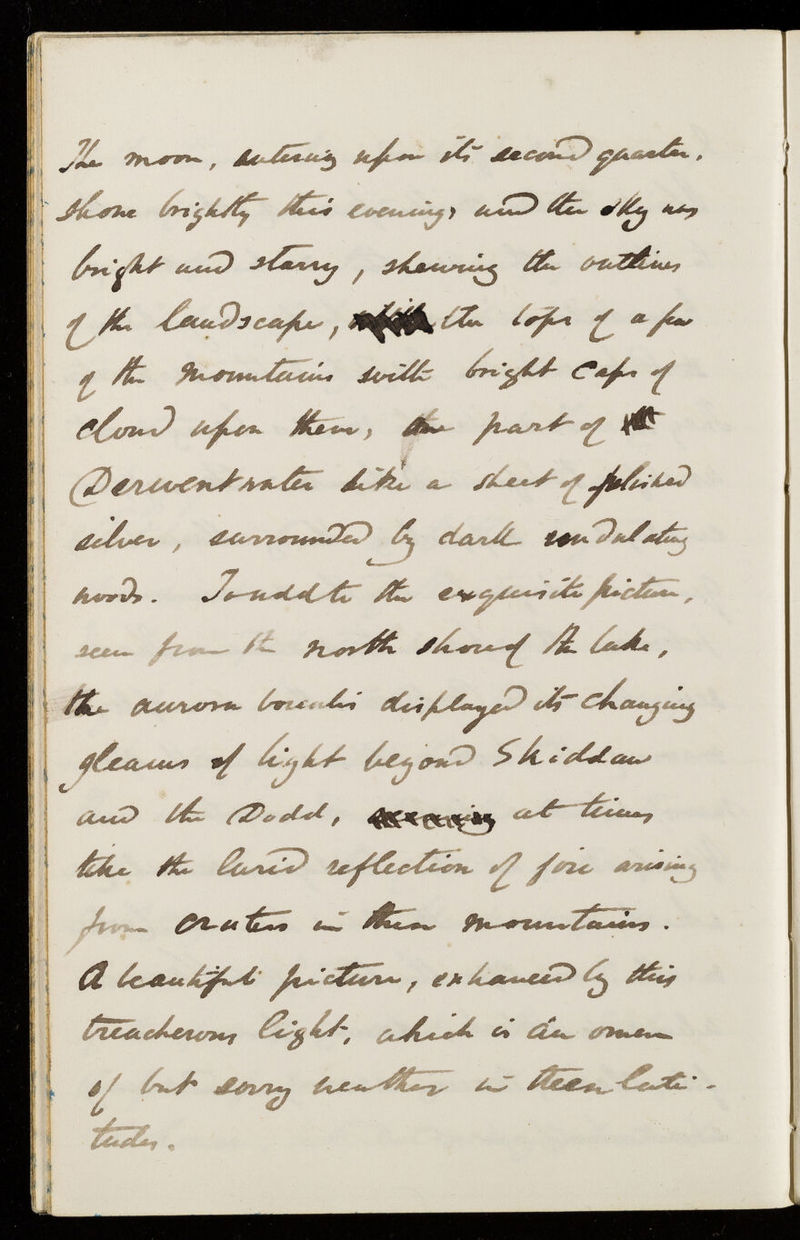 The moon, entering upon its second quarter,
shone brightly this evening, and the sky was
bright and starry, shewing the outlines
of the landscape, the tops of a few
of the mountains with bright caps of
cloud upon them, part of
Derwentwater like a sheet of polished
silver, surrounded by dark undulating
woods. To add to the exquisite picture,
seen from the north shore of the lake,
the aurora borealis displayed its changing
gleams of light beyond Skiddaw
and the Dodd, at times
like the lurid reflection of fire arising
from craters in these mountains.
A beautiful picture, enhanced by this
treacherous light, which is an omen
of but sorry weather in these lati-
tudes.